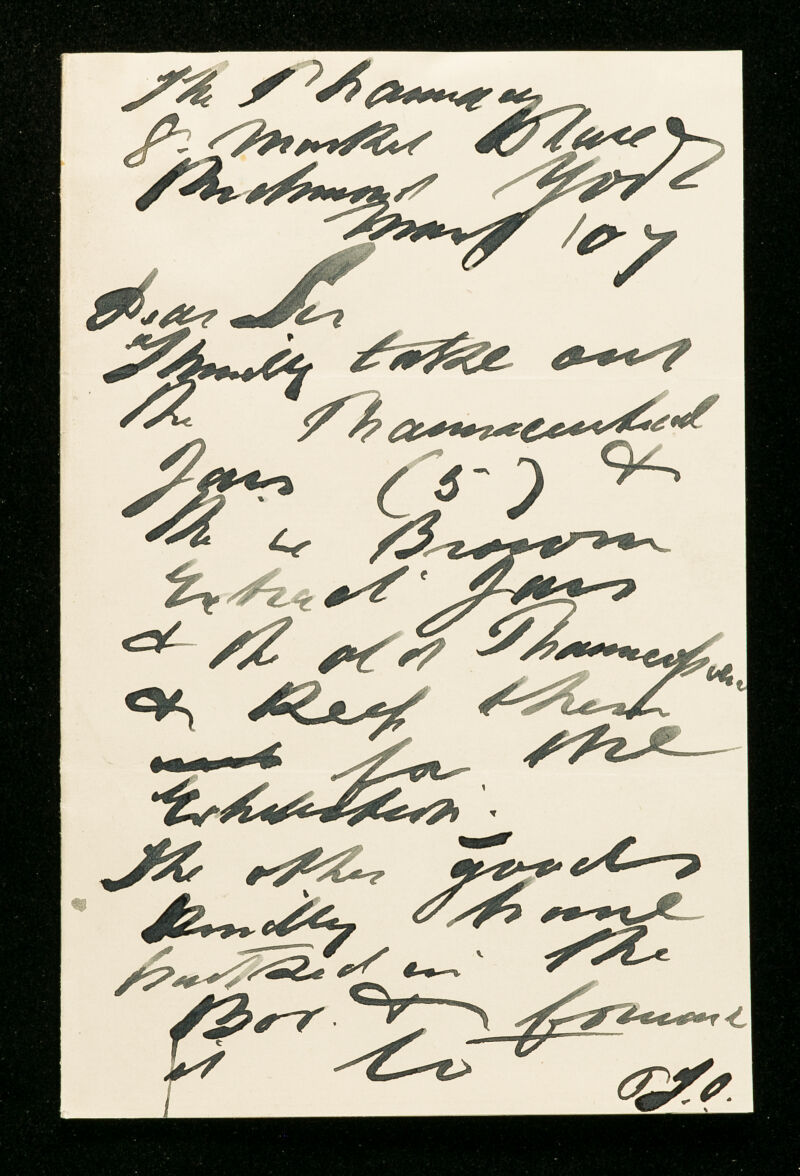 The Pharmacy
8. Market Place
Richmond York
May '07
Dear Sir
Kindly take out
the Pharmaceutical
Jars (5) &
the Brown
Extract Jars
& the old Pharmacopoeia
& Keep them
for the
Exhibition.
The other goods
Kindly have
packed in the
Box. & forward
it to
P.T.O.